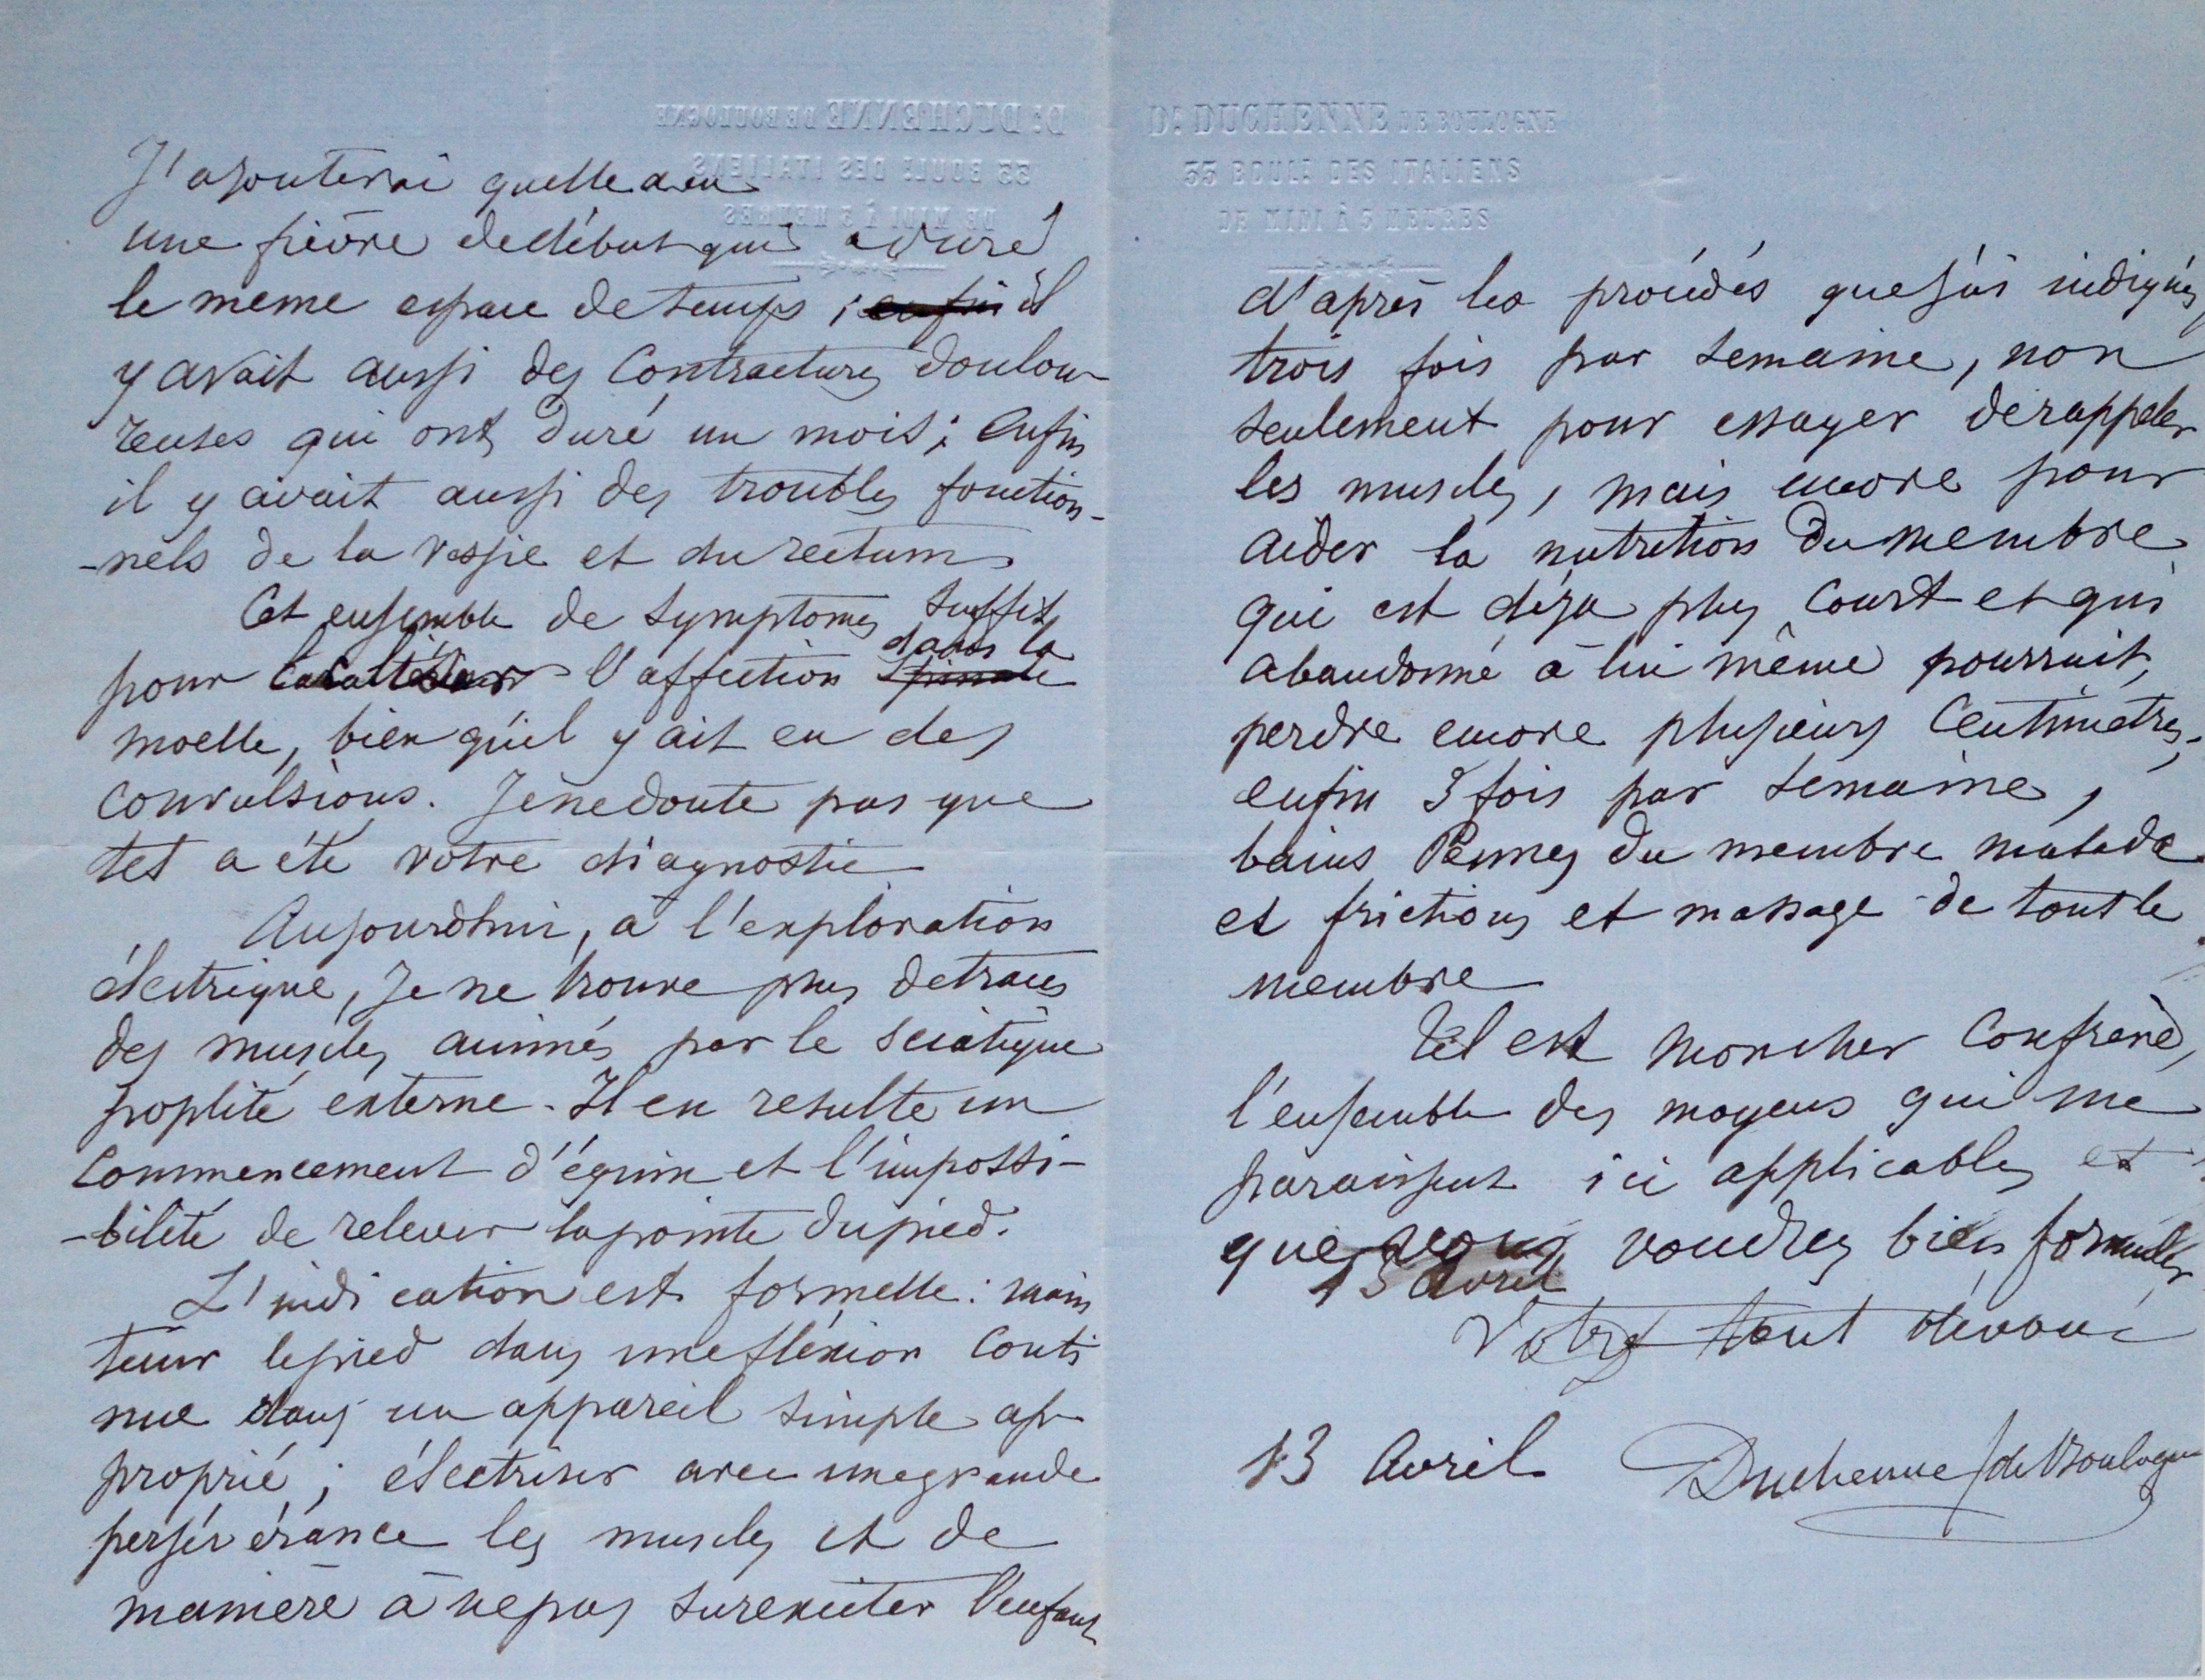 J'ajouterai quelle a eu
une fièvre de début qui a duré
le meme espace de temps ; enfin il
y avait aussi des Contractures doulou
reuses qui ont duré un mois ; enfin
il y avait aussi des troubles fonction-
-nels de la vessie et du rectum
Cet ensemble de symptomes suffit
dans la
pour caractériser l'affection spinale
moelle, bien qu'il y ait eu des
convulsions. Je ne doute pas que
tel a été votre diagnostic
Aujourdhui, à l'exploration
électrique, Je ne trouve plus de traces
des muscles animés par le sciatique
poplité externe. Il en resulte un
commencement d'équin et l'impossi-
-bilité de relever la pointe du pied.
L'indication est formelle : main
tenir le pied dans une fléxion conti
nue dans un appareil simple ap
proprié ; électriser avec une grande
persévérance les muscles et de
manière à ne pas surexciter l'enfant
Dr DUCHENNE DE BOULOGNE
33 BOULd DES ITALIENS
DE MIDI À 3 HEURES
d'après les procédés que j'ai indiqués,
trois fois par semaine, non
seulement pour essayer de rappeler
les muscles, mais encore pour
aider la nutrition du membre
qui est déja plus court et qui
abandonné à lui même pourrait,
perdre encore plusieurs Centimetres,
enfin 3 fois par semaine,
bains Pennes du membre malade
et frictions et massage de tout le
membre
Tel est mon cher Confrère,
l'ensemble des moyens qui me
paraissent ici applicables et
que vous voudrez bien formuler
13 avril
Votre tout dévoué
13 Avril Duchenne (de Boulogne